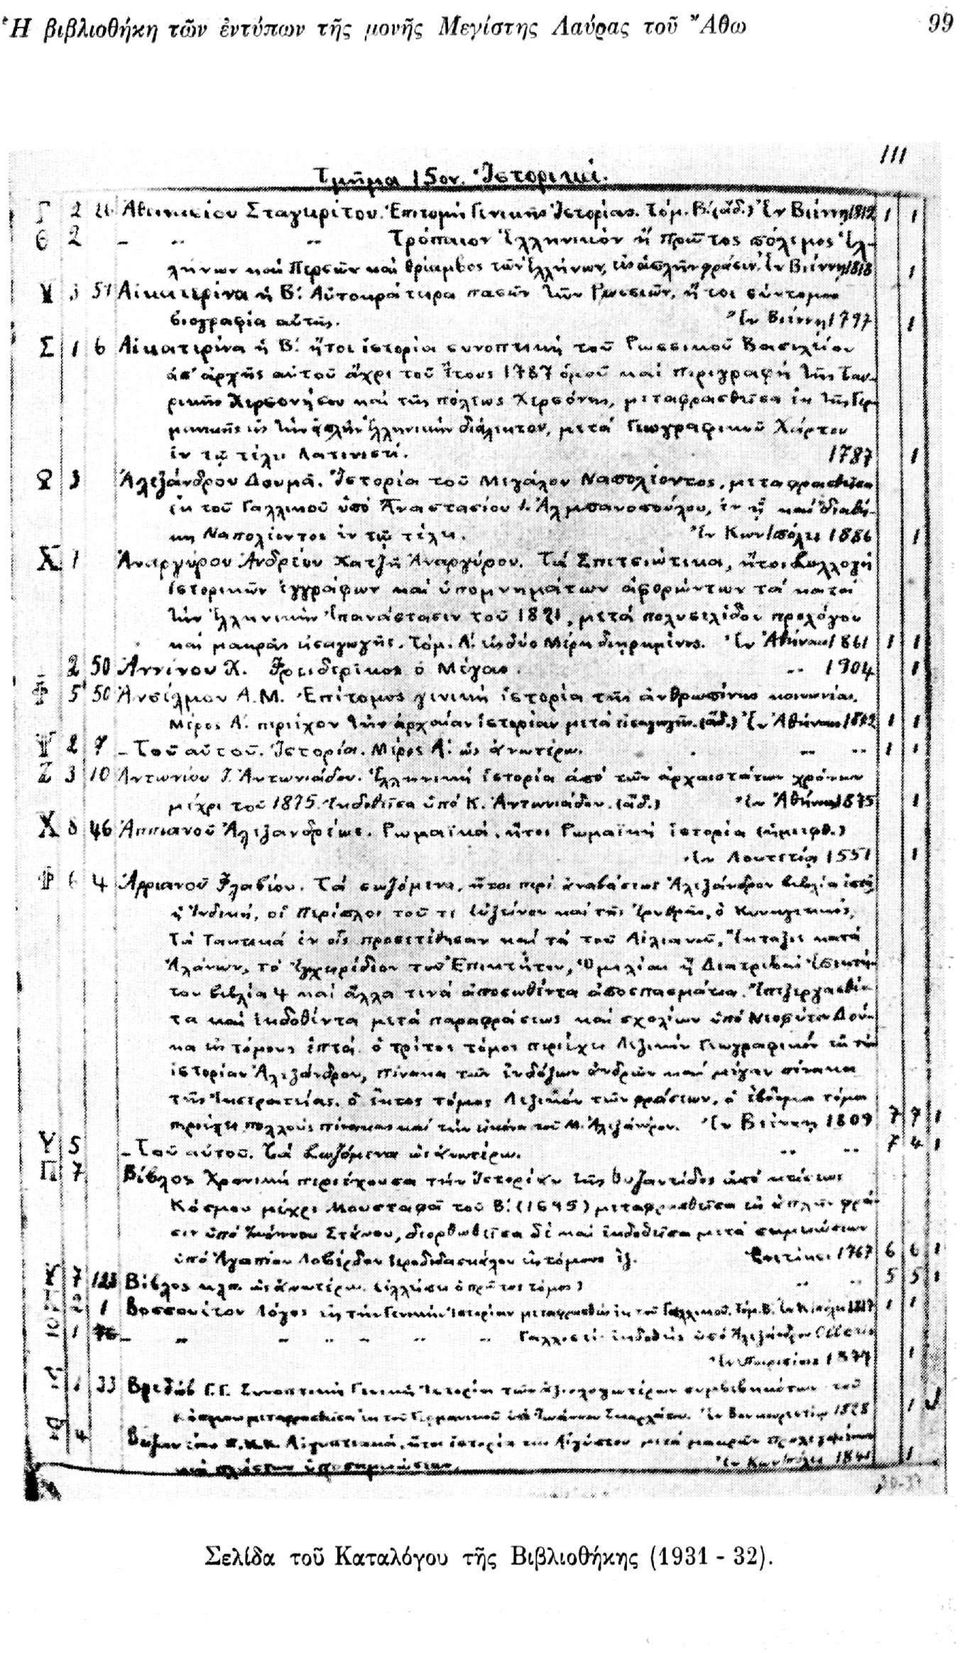 Ἡ βιβλιοθήκη τῶν ἐντύπων τῆς μονῆς Μεγίστης Λαύρας τοῦ Ἄθω 99
111
Τμῆμα 15ον. Ἱστορικαί.
Γ 2 Ἀθανασίου Σταγειρίτου. Ἐπιτομὴ Γενικῆς Ἱστορίας. Τόμ. Β΄. Ἐν Βιέννῃ 1 1
6 2 Τρόπαιον Ἑλληνικὸν ἢ Πρῶτος πόλεμος Ἑλ-
λήνων καὶ Περσῶν καὶ θρίαμβος τῶν Ἑλλήνων, Ἐν Βιέννῃ 1818 1
Αἰκατερίνα ἡ Β΄. Αὐτοκρατειρα πασῶν τῶν Ρωσσιῶν, ἤτοι σύντομος
βιογραφία αὐτῆς. Ἐν Βιέννῃ 1797 1
Σ 1 6 Αἰκατερίνα ἡ Β΄. ἤτοι ἱστορία συνοπτικὴ τοῦ Ρωσσικοῦ Βασιλείου
ἀπ' ἀρχῆς αὐτοῦ ἄχρι τοῦ ἔτους 1787 ὁμοῦ καὶ περιγραφὴ τῆς Ταυ-
ρικῆς Χερσονήσου καὶ τῆς πόλεως Χερσόνης, μεταφρασθεῖσα ἐκ τῆς Γερ-
μανικῆς εἰς τὴν ἁπλῆν Ἑλληνικὴν διάλεκτον, μετὰ Γεωγραφικοῦ Χάρτου
ἐν τῷ τέλει Λατινιστί. 1787 1
3 Ἀλεξάνδρου Δουμᾶ. Ἱστορία τοῦ Μεγάλου Ναπολέοντος, μεταφρασθεῖσα
ἐκ τοῦ Γαλλικοῦ ὑπὸ Ἀναστασίου ἐν ᾗ καὶ διαθή-
κη Ναπολέοντος ἐν τῷ τέλει. Ἐν Κων/πόλει 1886 1
Χ 1 Ἀναργύρου Ἀνδρέου Χατζῆ Ἀναργύρου. Τὰ Σπετσιώτικα, ἤτοι Συλλογὴ
ἱστορικῶν ἐγγράφων καὶ ὑπομνημάτων ἀφορώντων τὰ κατὰ
τὴν Ἑλληνικὴν Ἐπανάστασιν τοῦ 1821, μετὰ πολυσελίδου προλόγου
καὶ μακρᾶς εἰσαγωγῆς. Τόμ. Α΄. εἰς δύο Μέρη διῃρημένος. Ἐν Ἀθήναις 1861 1 1
2 50 Ἀννίνου Χ. Φρειδερίκος ὁ Μέγας. 1904 1
Φ 5 50 Ἀνσέλμου Α.Μ. Ἐπίτομος γενικὴ ἱστορία τῆς ἀνθρωπίνης κοινωνίας.
Μέρος Α΄. περιέχον τὴν ἀρχαίαν ἱστορίαν μετὰ εἰσαγωγῆς. Ἐν Ἀθήναις 1 1
Τοῦ αὐτοῦ. Ἱστορία. Μέρος Α΄. ὡς ἀνωτέρω. 1 1
Ζ 3 10 Ἀντωνίου Ἰ. Ἀντωνιάδου. Ἑλληνικὴ ἱστορία ἀπὸ τῶν ἀρχαιοτάτων χρόνων
μέχρι τοῦ 1875. Ἐκδοθεῖσα ὑπὸ Κ. Ἀντωνιάδου. Ἐν Ἀθήναις 1875 1
Χ 46 Ἀππιανοῦ Ἀλεξανδρέως. Ρωμαϊκά, ἤτοι Ρωμαϊκὴ ἱστορία
Ἐν Λουτετίᾳ 1551 1
Φ 6 4 Ἀρριανοῦ Φλαβίου. Τὰ σωζόμενα, ἤτοι περὶ ἀναβάσεως Ἀλεξάνδρου βιβλία ἑπτά,
ἡ Ἰνδική, οἱ Περίπλοι τοῦ τε Εὐξείνου καὶ τῆς Ἐρυθρᾶς, ὁ Κυνηγετικός,
Τὰ Τακτικὰ ἐν οἷς προσετέθησαν καὶ τὰ τοῦ Αἰλιανοῦ, Ἔκταξις κατὰ
Ἀλάνων, τὸ Ἐγχειρίδιον τοῦ Ἐπικτήτου, Ὁμιλίαι ἢ Διατριβαὶ Ἐπικτή-
του βιβλία 4 καὶ ἄλλα τινὰ ἀποσωθέντα ἀποσπασμάτια. Ἐπεξεργασθέν-
τα καὶ ἐκδοθέντα μετὰ παραφράσεως καὶ σχολίων ὑπὸ Νεοφύτου Δού-
κα εἰς τόμους ἑπτά. ὁ τρίτος τόμος περιέχει Λεξικὸν Γεωγραφικὸν εἰς τὴν
ἱστορίαν Ἀλεξάνδρου, πίνακα τῶν ἐνδόξων ἀνδρῶν καὶ μέγαν πίνακα
τῆς Ἐκστρατείας. ὁ ἕκτος τόμος Λεξικὸν τῶν φράσεων, ὁ ἕβδομος τόμος
περιέχει πολλοὺς πίνακας καὶ τὴν εἰκόνα τοῦ Μ. Ἀλεξάνδρου. Ἐν Βιέννῃ 1809 7 7 1
Υ 5 Τοῦ αὐτοῦ. Τὰ Σωζόμενα ὡς ἀνωτέρω. 7 4 1
Π 7 Βίβλος Χρονικὴ περιέχουσα τὴν Ἱστορίαν τῆς Βυζαντίδος ἀπὸ κτίσεως
Κόσμου μέχρι Μουσταφᾶ τοῦ Β΄. (1695) μεταφρασθεῖσα εἰς ἁπλῆν φρά-
σιν ὑπὸ Ἰωάννου Στάνου, διορθωθεῖσα δὲ καὶ ἐκδοθεῖσα μετὰ σημειώσεων
ὑπὸ Ἀγαπίου Λοβέρδου Ἱεροδιδασκάλου εἰς τόμους ἕξ. Ἐνετίῃσι 1767 6 6 1
7 Βίβλος κλπ. ὡς ἀνωτέρω. (ἐλλείπει ὁ πρῶτος τόμος) 5 5 1
1 Βοσσουέτου Λόγος εἰς τὴν Γενικὴν Ἱστορίαν μεταφρασθεὶς ἐκ τοῦ Γαλλικοῦ. Τόμ. Β. 1 1
Γαλλιστὶ ἐκδοθεὶς ὑπὸ
Ἐν Παρισίοις 1
1 33 Γ.Γ. Συνοπτικὴ Γενικὴ Ἱστορία τῶν ἀξιολογωτέρων συμβεβηκότων τοῦ
Κόσμου μεταφρασθεῖσα ἐκ τοῦ Γερμανικοῦ ὑπὸ Ἰωάννου 1828 1
4 Αἰγυπτιακά, ἤτοι ἱστορία τῆς Αἰγύπτου μετὰ μακρῶν προλεγομένων
καὶ πλείστων ὑποσημειώσεων. Ἐν Κων/πόλει 1
Σελίδα τοῦ Καταλόγου τῆς Βιβλιοθήκης (1931 - 32).